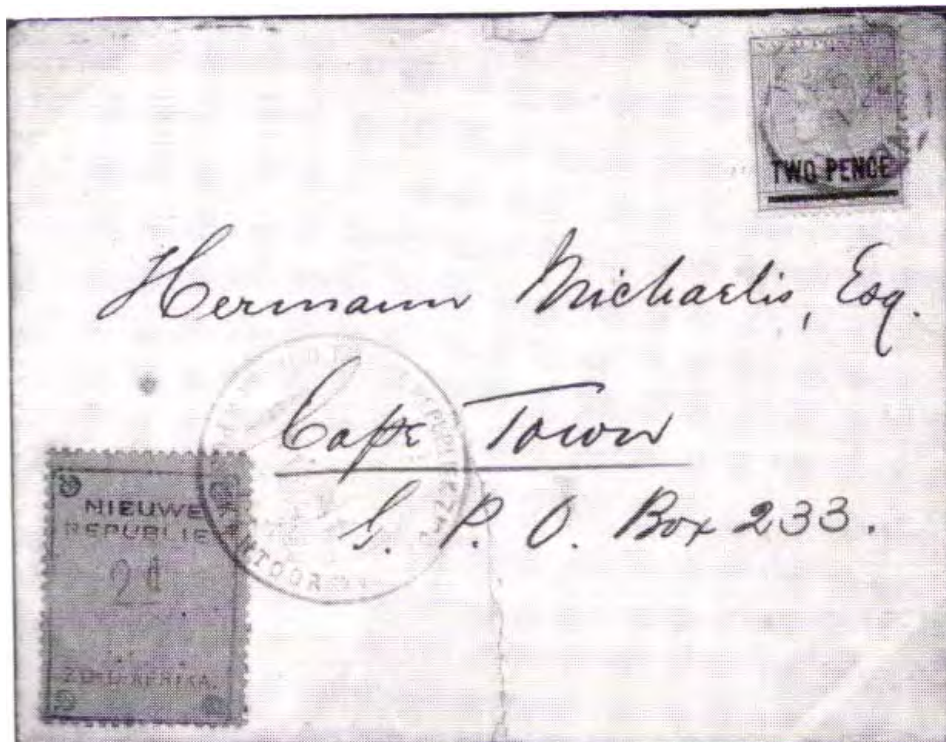 TWO PENCE
Hermann Michaelis, Esq.
Cape Town
G. P. O. Box 233.
NIEUWE
REPUBLIEK
2d
ZUID-AFRIKA.
KANTOOR